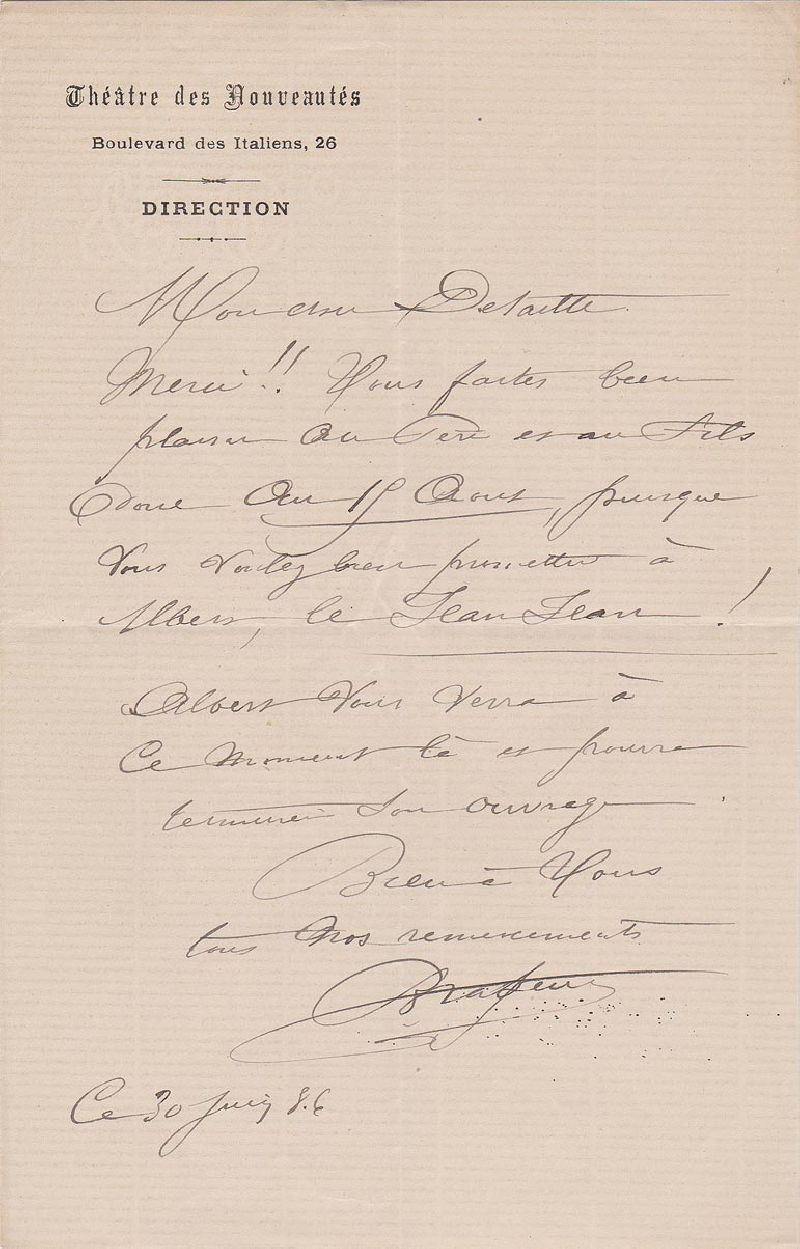 Théâtre des Nouveautés
Boulevard des Italiens, 26
DIRECTION
Monsieur Detaille
Merci!! Vous faites bien
plaisir au Père et au Fils
Donc Au 15 Aout, puisque
Vous voulez bien promettre à
Albert, le Jean Jean!
Albert Vous Verra à
Ce moment là et pourra
terminer Son ouvrage.
Bien à Vous
tous Nos remerciements
Brasseur
Ce 30 Juin 86